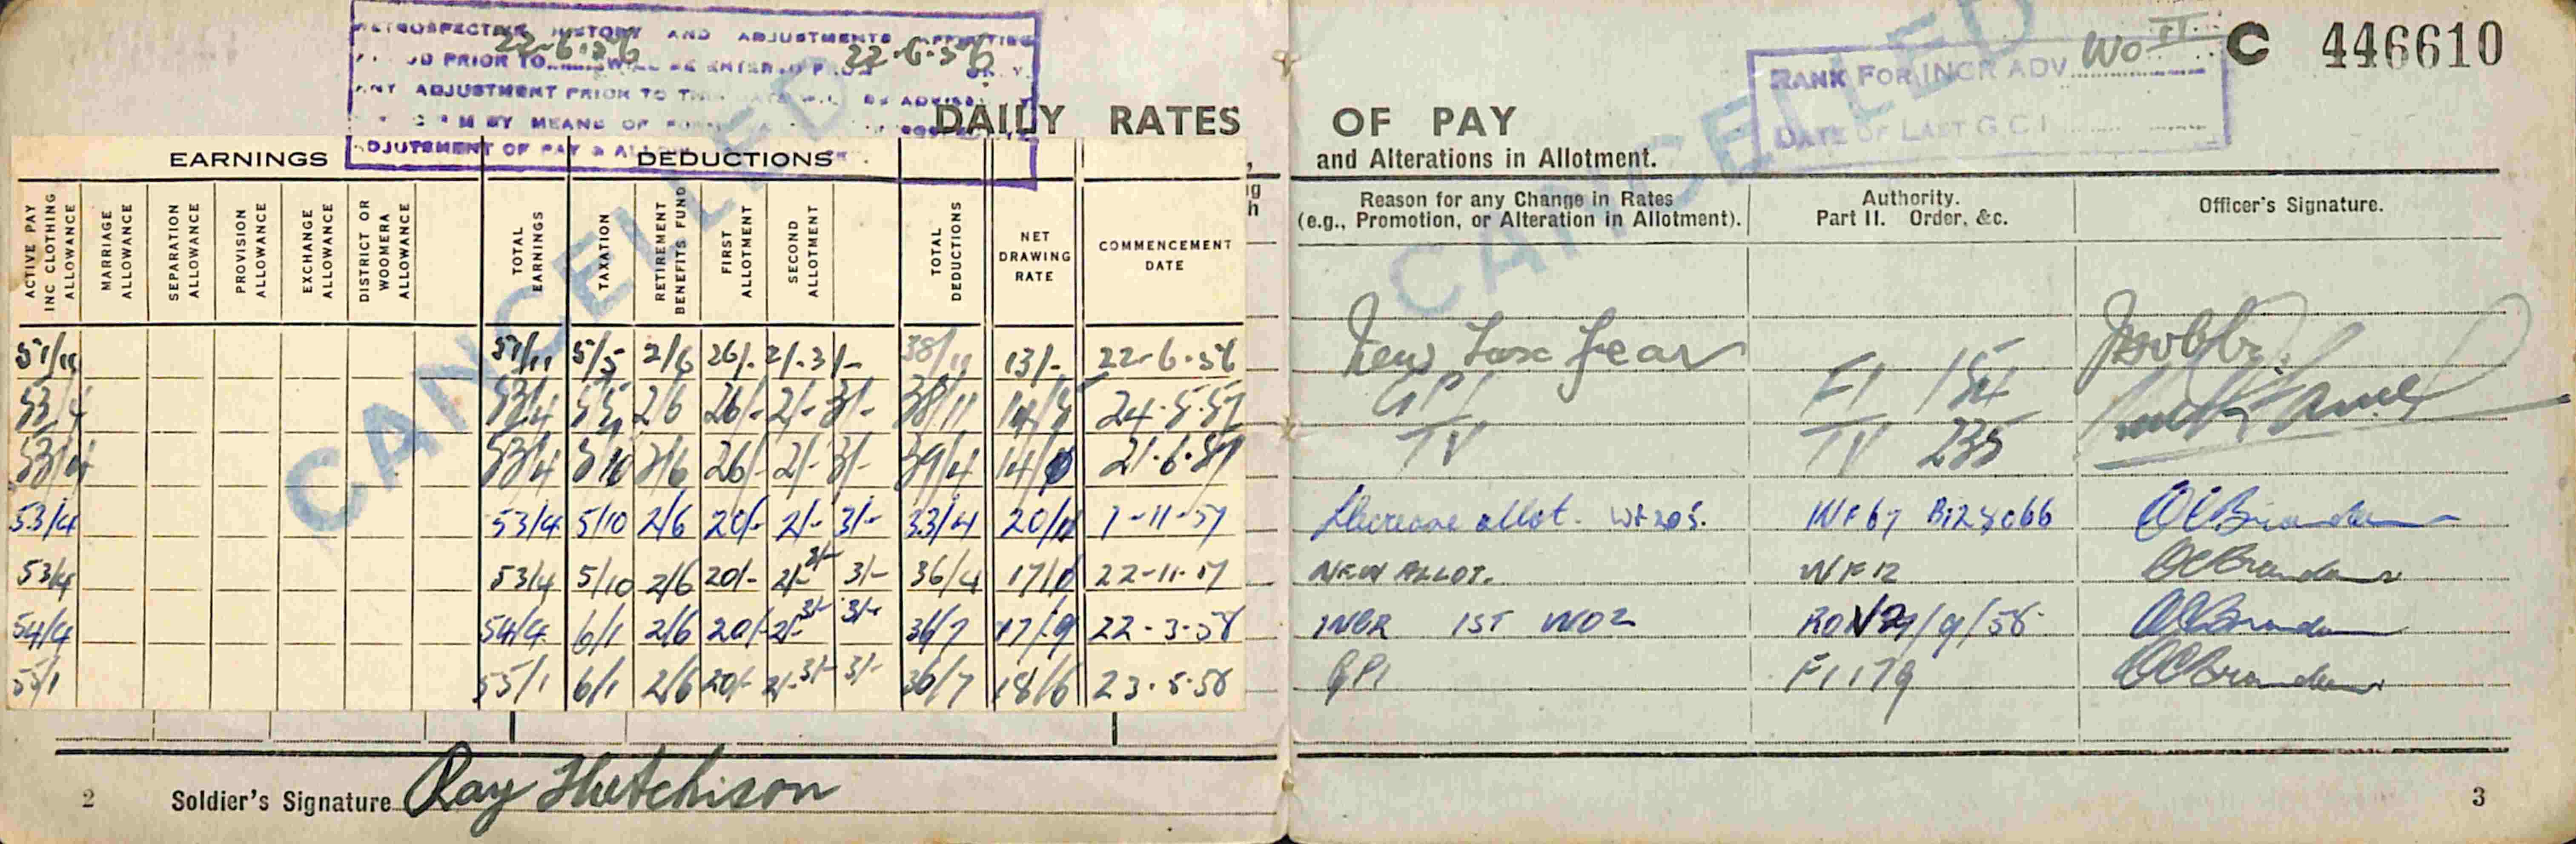 RETROSPECTIVE HISTORY AND ADJUSTMENTS AFFECTING
PRIOR TO 22-6-56 WILL BE ENTERED 22-6-56
ANY ADJUSTMENT PRIOR TO THIS DATE WILL BE ADVISED
BY MEANS OF
ADJUSTMENT OF PAY &
RANK FOR INCR ADV WO II
DATE OF LAST G.C.I.
C 446610
CANCELLED
CANCELLED
DAILY RATES OF PAY
and Alterations in Allotment.
EARNINGS DEDUCTIONS
ACTIVE PAY INC CLOTHING ALLOWANCE
MARRIAGE ALLOWANCE
SEPARATION ALLOWANCE
PROVISION ALLOWANCE
EXCHANGE ALLOWANCE
DISTRICT OR WOOMERA ALLOWANCE
TOTAL EARNINGS
TAXATION
RETIREMENT BENEFITS FUND
FIRST ALLOTMENT
SECOND ALLOTMENT
TOTAL DEDUCTIONS
NET DRAWING RATE
COMMENCEMENT DATE
Reason for any Change in Rates
(e.g., Promotion, or Alteration in Allotment).
Authority.
Part II. Order, &c.
Officer's Signature.
51/11 51/11 5/5 2/6 26/- 2/- 3/- 38/11 13/- 22-6-56 New Tax Year
53/4 53/4 5/5 2/6 26/- 2/- 3/- 38/11 14/5 24-5-57 GPI F1 154
53/4 53/4 5/10 2/6 26/- 2/- 3/- 39/4 14/0 21-6-57 TV TV 235
53/4 53/4 5/10 2/6 20/- 2/- 3/- 33/4 7-11-57 allot.
53/4 53/4 5/10 2/6 20/- 2/- 3/- 3/- 36/4 22-11-57 NEW ALLOT. WF12
54/4 54/4 6/1 2/6 20/- 2/- 3/- 3/- 36/7 17/9 22-3-58 INCR 1ST WO2
55/1 55/1 6/1 2/6 20/- 2/- 3/- 3/- 36/7 18/6 23-5-58 GPI F1179
2 Soldier's Signature Ray Hutchison 3